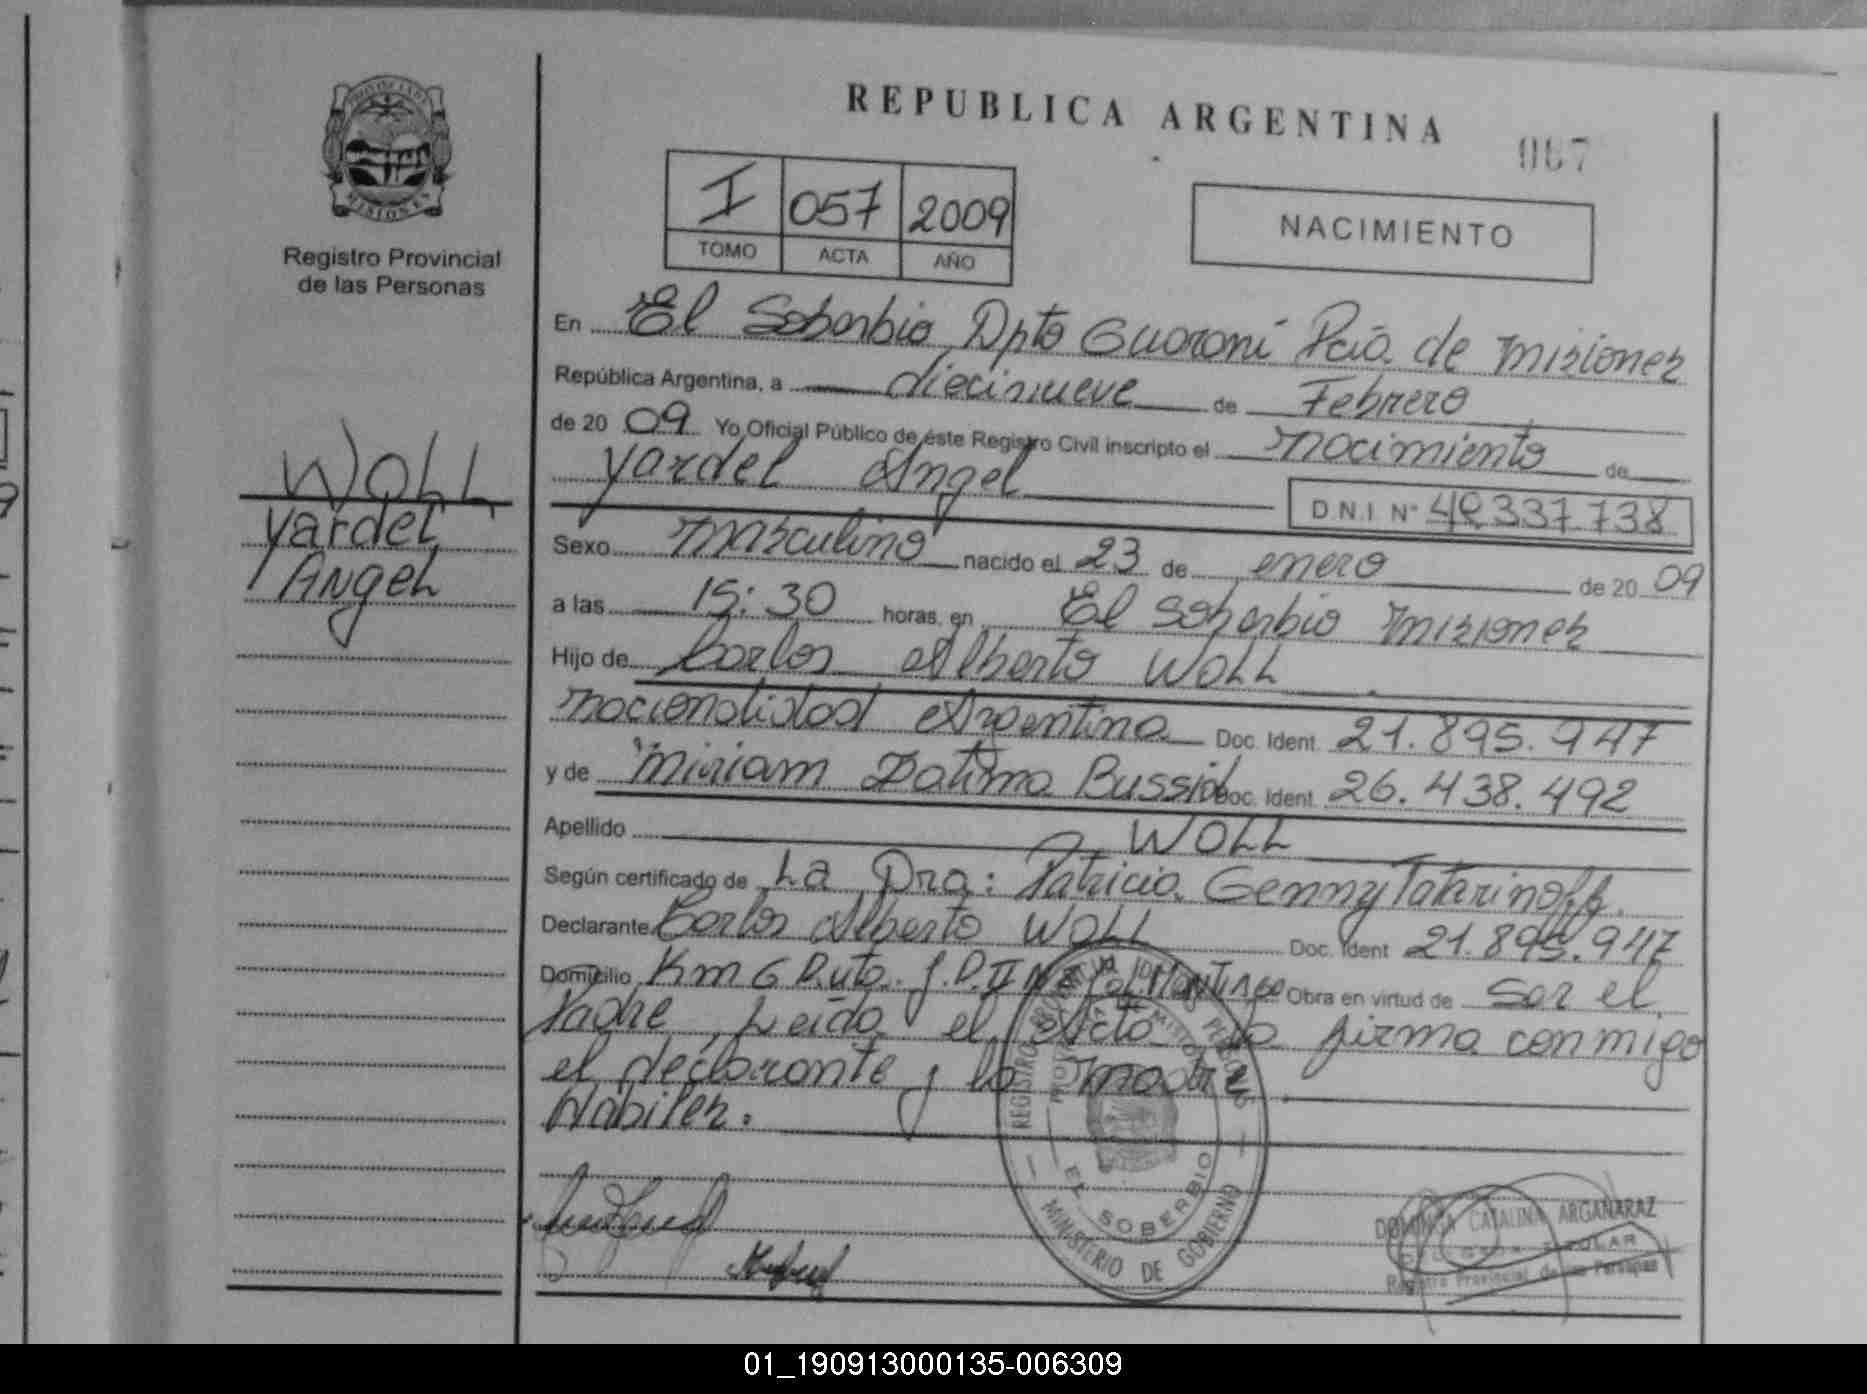 PROVINCIA DE
MISIONES
Registro Provincial
de las Personas
WOLL
Yardel
Angel
REPUBLICA ARGENTINA
067
I 057 2009
TOMO ACTA AÑO
NACIMIENTO
En El Soberbio Dpto Guaraní Pcia. de Misiones
República Argentina, a diecinueve de Febrero
de 20 09 Yo Oficial Público de éste Registro Civil inscripto el nacimiento de
Yardel Angel
D.N.I. Nº 49337738
Sexo masculino nacido el 23 de enero de 20 09
a las 15:30 horas, en El Soberbio Misiones
Hijo de Carlos Alberto WOLL
nacionalidad Argentina Doc. Ident. 21.895.947
y de Miriam Fatima Bussi Doc. Ident. 26.438.492
Apellido WOLL
Según certificado de La Dra: Patricia Genny Tatarinoff.
Declarante Carlos Alberto WOLL Doc. Ident 21.895.947
Domicilio Km 6 Ruta Obra en virtud de ser el
Padre, Leída el Acta la firma conmigo
el declarante y la madre
Hábiles.
REGISTRO PROVINCIAL DE LAS PERSONAS
MINISTERIO DE GOBIERNO
EL SOBERBIO
DOMINGA CATALINA ARGAÑARAZ
TITULAR
Registro Provincial de las Personas
01_190913000135-006309